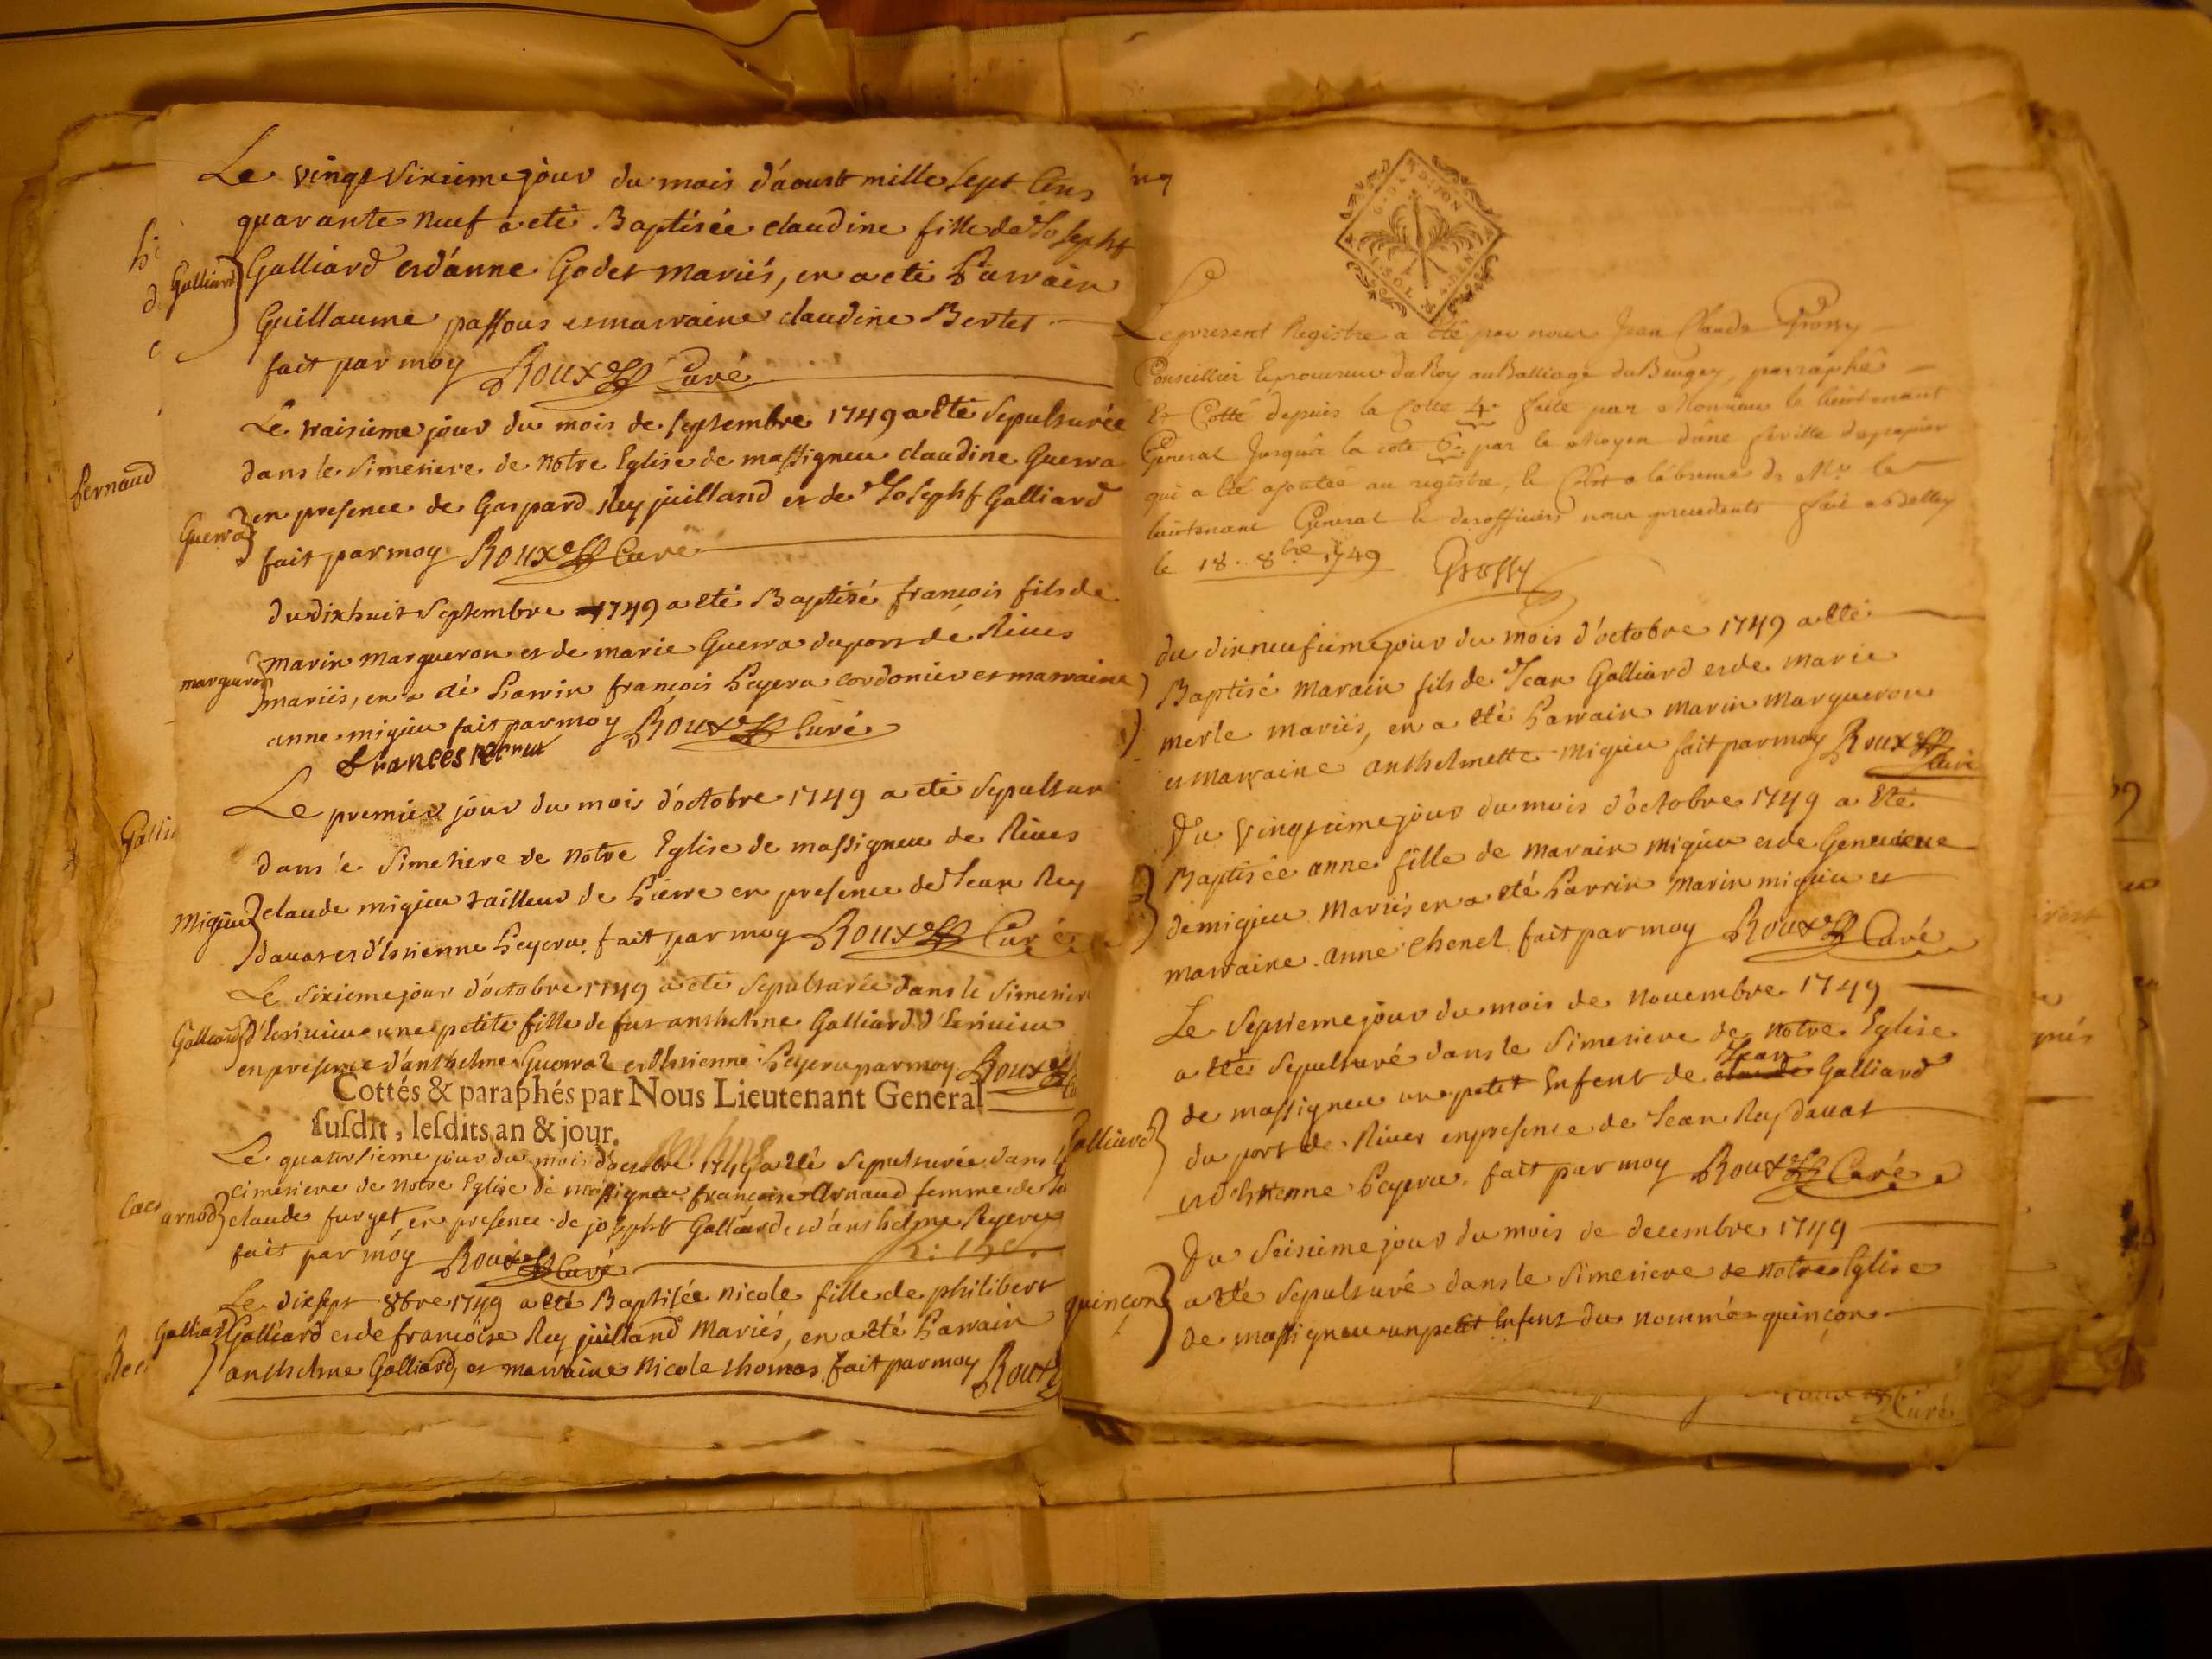 Le vingt sixieme jour du mois d'aoust mille sept cens
quarante neuf a eté Baptisée claudine fille de Josephf
Galliard
Galliard et d'anne Godet mariés, en a eté Parrain
Guillaume passous et marraine claudine Bertet
fait par moy Roux Curé
Le traisieme jour du mois de septembre 1749 a eté sepulturée
dans le simetiere de notre Eglise de massigneu claudine Guerra
en presence de Gaspard Rey juilland et de Josephf Galliard
Guerra
fait par moy Roux Curé
bernaud
du dixhuit septembre 1749 a eté Baptisé françois fils de
marin margueron et de marie Guerra du port de Rives
margueron
mariés, en a eté Parrin françois Peyera cordonier et marraine
anne migieu fait par moy Roux Curé
Le premier jour du mois d'octobre 1749 a eté sepultur
dans le simetiere de notre Eglise de massigneu de Rives
Migieu
claude migieu tailleur de Pierre en presence de Jean Rey
davat et d'Etienne Peyera fait par moy Roux Curé
Le sixieme jour d'octobre 1749 a eté sepulturée dans le simetier
Galliard
une petite fille de fut anthelme Galliard
en presence d'anthelme Guerraz et d'Etienne Peyera par moy Roux
Cottés & paraphés par Nous Lieutenant General
susdit, lesdits an & jour.
Le quatorsieme jour du mois d'octobre 1749 a eté sepulturée dans
cimetiere de notre Eglise de massigneu françoise Arnaud femme de
arnod
claude furget en presence de josephf Galliard et d'anthelme Peyera
fait par moy Roux Curé
Le dixsept 8bre 1749 a eté Baptisée nicole fille de philibert
Galliard
Galliard et de françoise Rey juilland Mariés, en a eté Parrain
anthelme Galliard, et marraine Nicole thomas fait par moy Roux
Le present Registre a été par nous Jean Claude Grossy
Conseillier procureur du Roy au Balliage du Bugey, parraphé
Et Cotté depuis la Cotte 4 faite par Monsieur le lieutenant
General Jusqu'à la cote 6 par le moyen d'une feuille de papier
qui a été ajoutée au registre, le de Mr le
lieutenant General
le 18 8bre 1749 Grossy
du dixneufieme jour du mois d'octobre 1749 a eté
Baptisé marain fils de Jean Galliard et de marie
merle mariés, en a eté Parrain marin margueron
et marraine anthelmette migieu fait par moy Roux Curé
Du vingtieme jour du mois d'octobre 1749 a eté
Baptisée anne fille de marain migieu et de Genevieve
demigieu mariés en a eté Parrin marin migieu et
marraine anne chenel fait par moy Roux Curé
Le septieme jour du mois de novembre 1749
a eté sepulturé dans le simetiere de notre Eglise
de massigneu un petit Enfent de Jean Galliard
Galliard
du port de Rives en presence de Jean Rey davat
et d'Etienne Peyera fait par moy Roux Curé
Du seisieme jour du mois de decembre 1749
quinçon
a eté sepulturé dans le simetiere de notre Eglise
de massigneu un petit Enfent du nommé quinçon
Curé